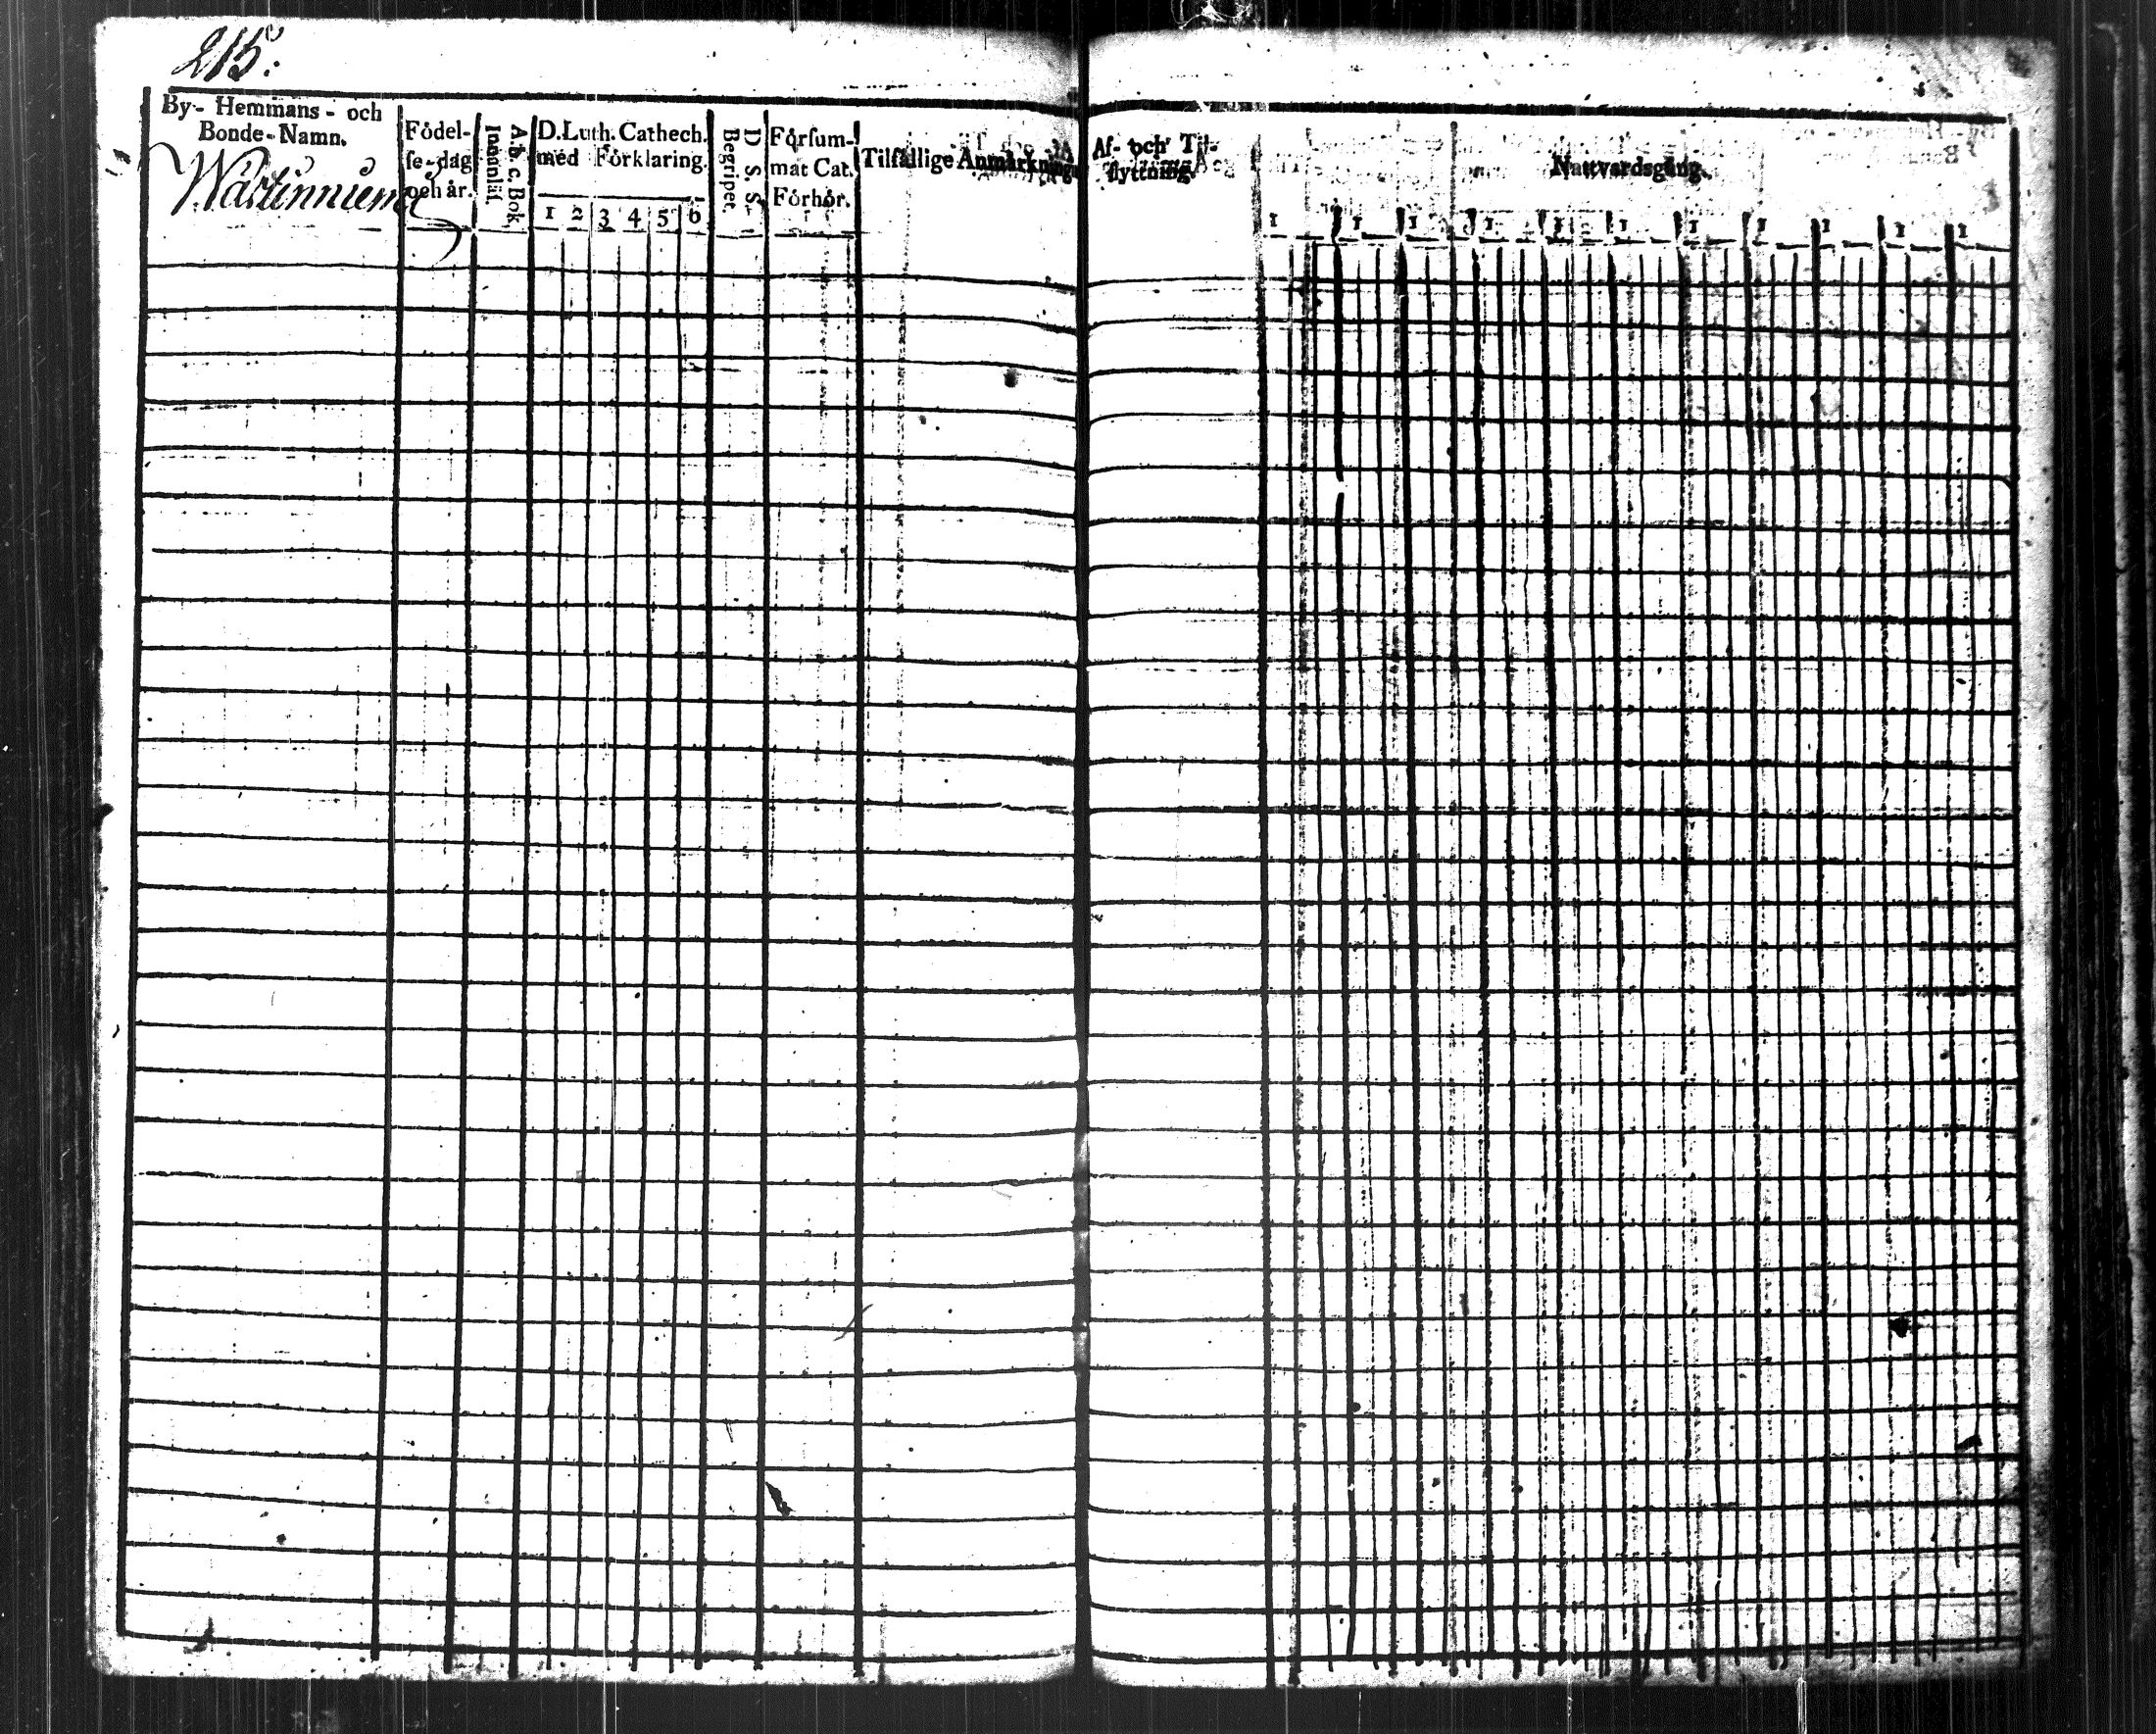 215:
By- Hemmans- och
Bonde-Namn.
Wartinniemi
Födel-
se-dag
och år.
A. b. c. Bok
Innanläs.
D. Luth. Cathech.
med Förklaring.
1 2 3 4 5 6
D. S. S.
Begripet.
Försum-
mat Cat.
Förhör.
Tilfällige Anmärkning
Af- och Til-
flyttning.
Nattvardsgång.
1 1 1 1 1 1 1 1 1 1 1